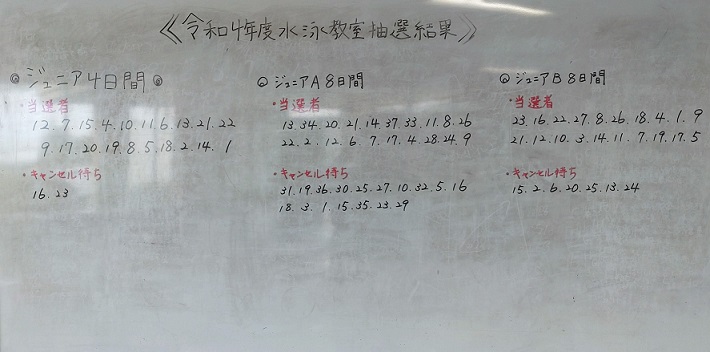 ≪令和4年度水泳教室抽選結果≫
◎ジュニア4日間◎
・当選者
12.7.15.4.10.11.6.13.21.22
9.17.20.19.8.5.18.2.14.1
・キャンセル待ち
16.23
◎ジュニアA8日間
・当選者
13.34.20.21.14.37.33.11.8.26
22.2.12.6.7.17.4.28.24.9
・キャンセル待ち
31.19.36.30.25.27.10.32.5.16
18.3.1.15.35.23.29
◎ジュニアB8日間
・当選者
23.16.22.27.8.26.18.4.1.9
21.12.10.3.14.11.7.19.17.5
・キャンセル待ち
15.2.6.20.25.13.24